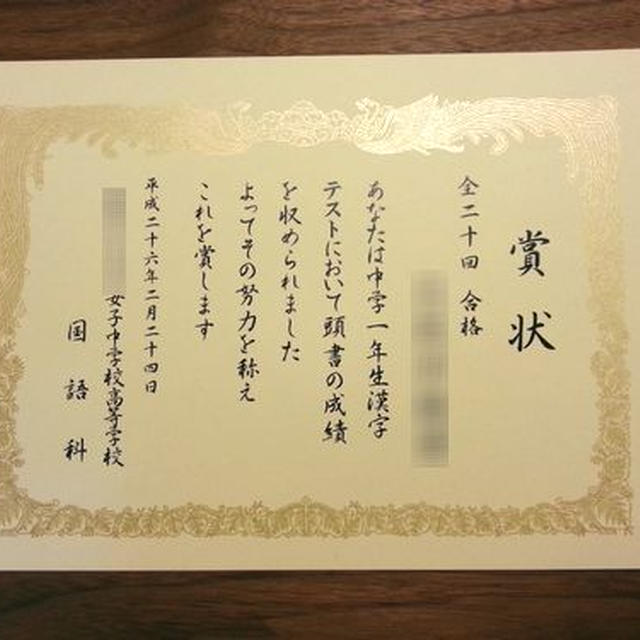 賞状
全二十回 合格
あなたは中学一年生漢字
テストにおいて頭書の成績
を収められました
よってその努力を称え
これを賞します
平成二十六年二月二十四日
女子中学校高等学校
国語科